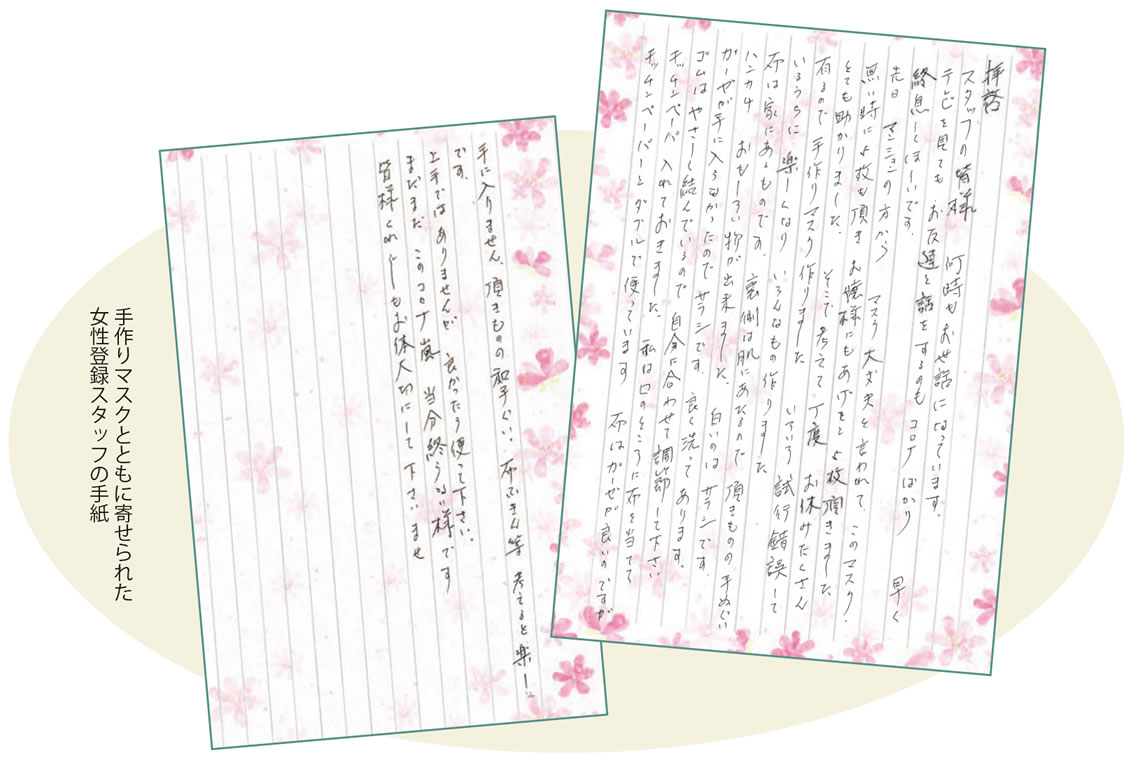 拝啓
スタッフの皆様 何時もお世話になっています。
テレビを見ても お友達と話をするのも コロナばかり 早く
終息してほしいです。
先日 マンションの方から マスク大丈夫と言われて、このマスク
無い時に 枚も頂き お嬢様にもあげてと 枚頂きました、
とても助かりました、 そこで考えて 丁度 お休みたくさん
有るので 手作りマスク作りました いろいろ試行錯誤して
いるうちに 楽しくなり いろんなもの作りました
布は家にあるものです、裏側は肌にあたるので 頂きものの手ぬぐい
ハンカチ おもしろい物が出来ました、 白いのはサラシです、
ガーゼが手に入らなかったので サラシです、良く洗ってあります。
ゴムはやさしく結んでいるので 自分に合わせて調節して下さい
キッチンペーパ 入れておきました、 私は口のところに布を当てて
キッチンペーパーとダブルで使っています 布はガーゼが良いのですが
手に入りません、頂きものの和手ぐい、布ふきん等 考えると楽しい
です。
上手ではありませんが 良かったら使って下さい、
まだまだ このコロナ嵐 当分終らない様です
皆様くれぐれもお体大切にして下さいませ
手作りマスクとともに寄せられた
女性登録スタッフの手紙